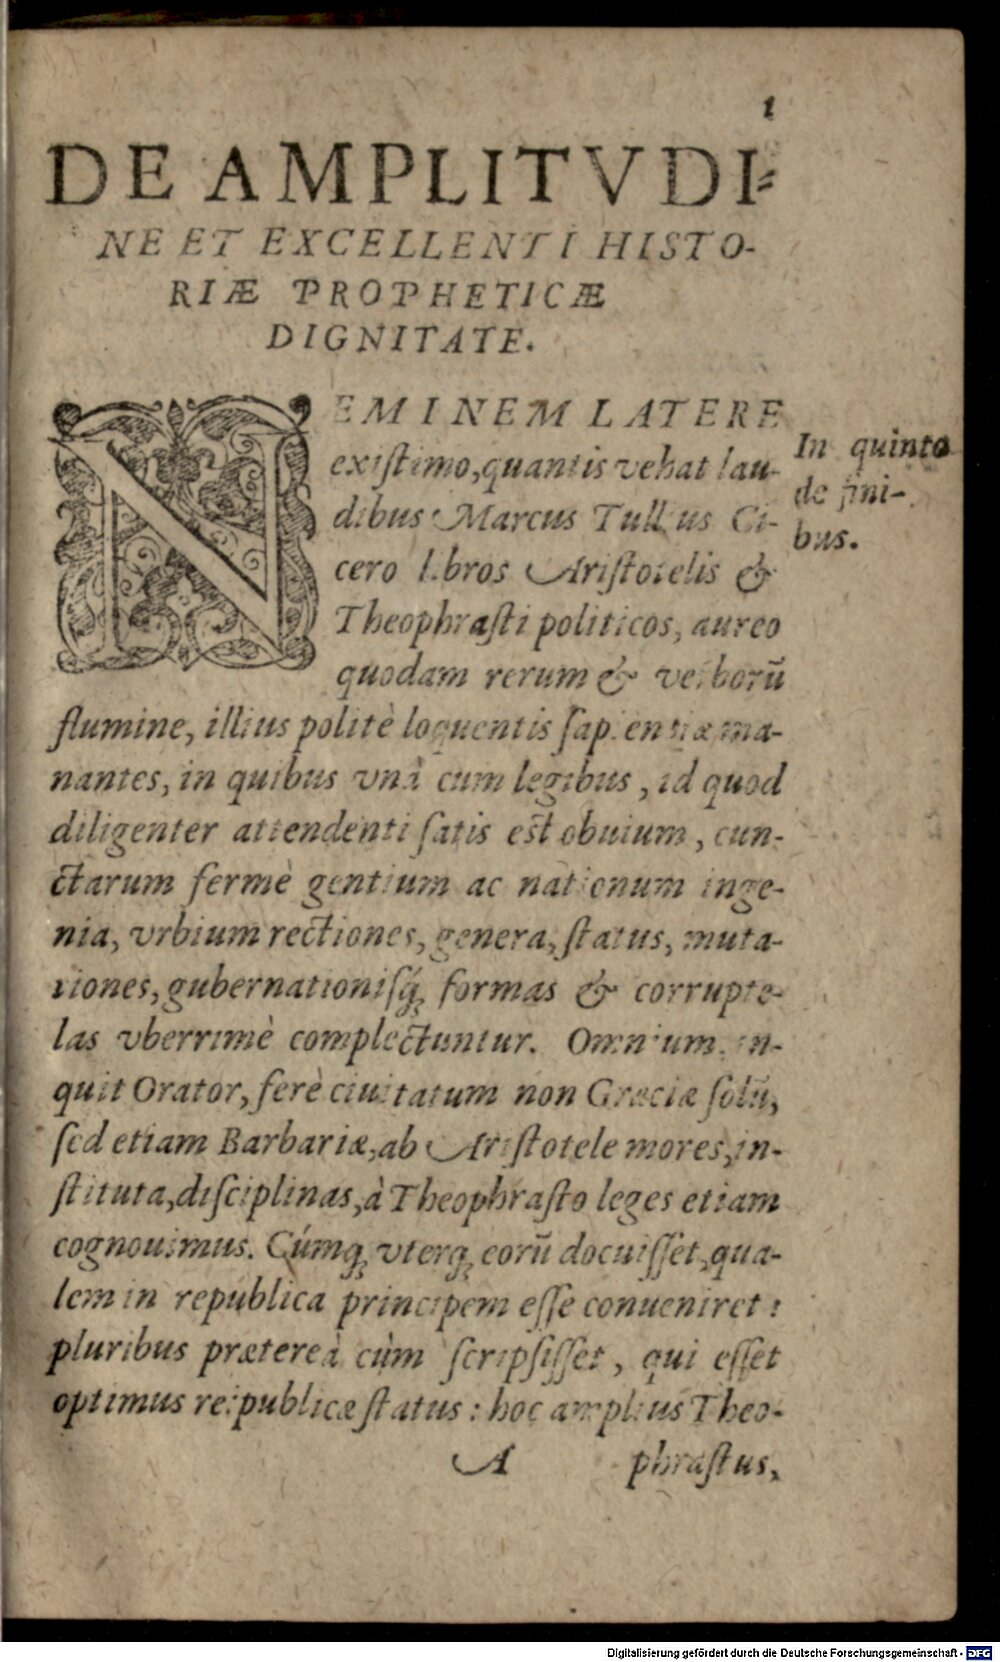 1
DE AMPLITVDI⸗
NE ET EXCELLENTI HISTO-
RIÆ PROPHETICÆ
DIGNITATE.
NEMINEM LATERE
existimo, quantis vehat lau-
dibus Marcus Tullius Ci-
cero libros Aristotelis &
Theophrasti politicos, aureo
quodam rerum & verborū
flumine, illius politè loquentis sapientiæ ma-
nantes, in quibus vnà cum legibus, id quod
diligenter attendenti satis est obuium, cun-
ctarum fermè gentium ac nationum inge-
nia, vrbium rectiones, genera, status, muta-
tiones, gubernationisq́; formas & corrupte-
las vberrimè complectuntur. Omnium, in-
quit Orator, ferè ciuitatum non Græciæ solū,
sed etiam Barbariæ, ab Aristotele mores, in-
stituta, disciplinas, à Theophrasto leges etiam
cognouimus. Cúmq; vterq; eorū docuisset, qua-
lem in republica principem esse conueniret:
pluribus prætereà cùm scripsisset, qui esset
optimus reipublicæ status: hoc amplius Theo-
A phrastus,
In quinto
de fini-
bus.
Digitalisierung gefördert durch die Deutsche Forschungsgemeinschaft - DFG